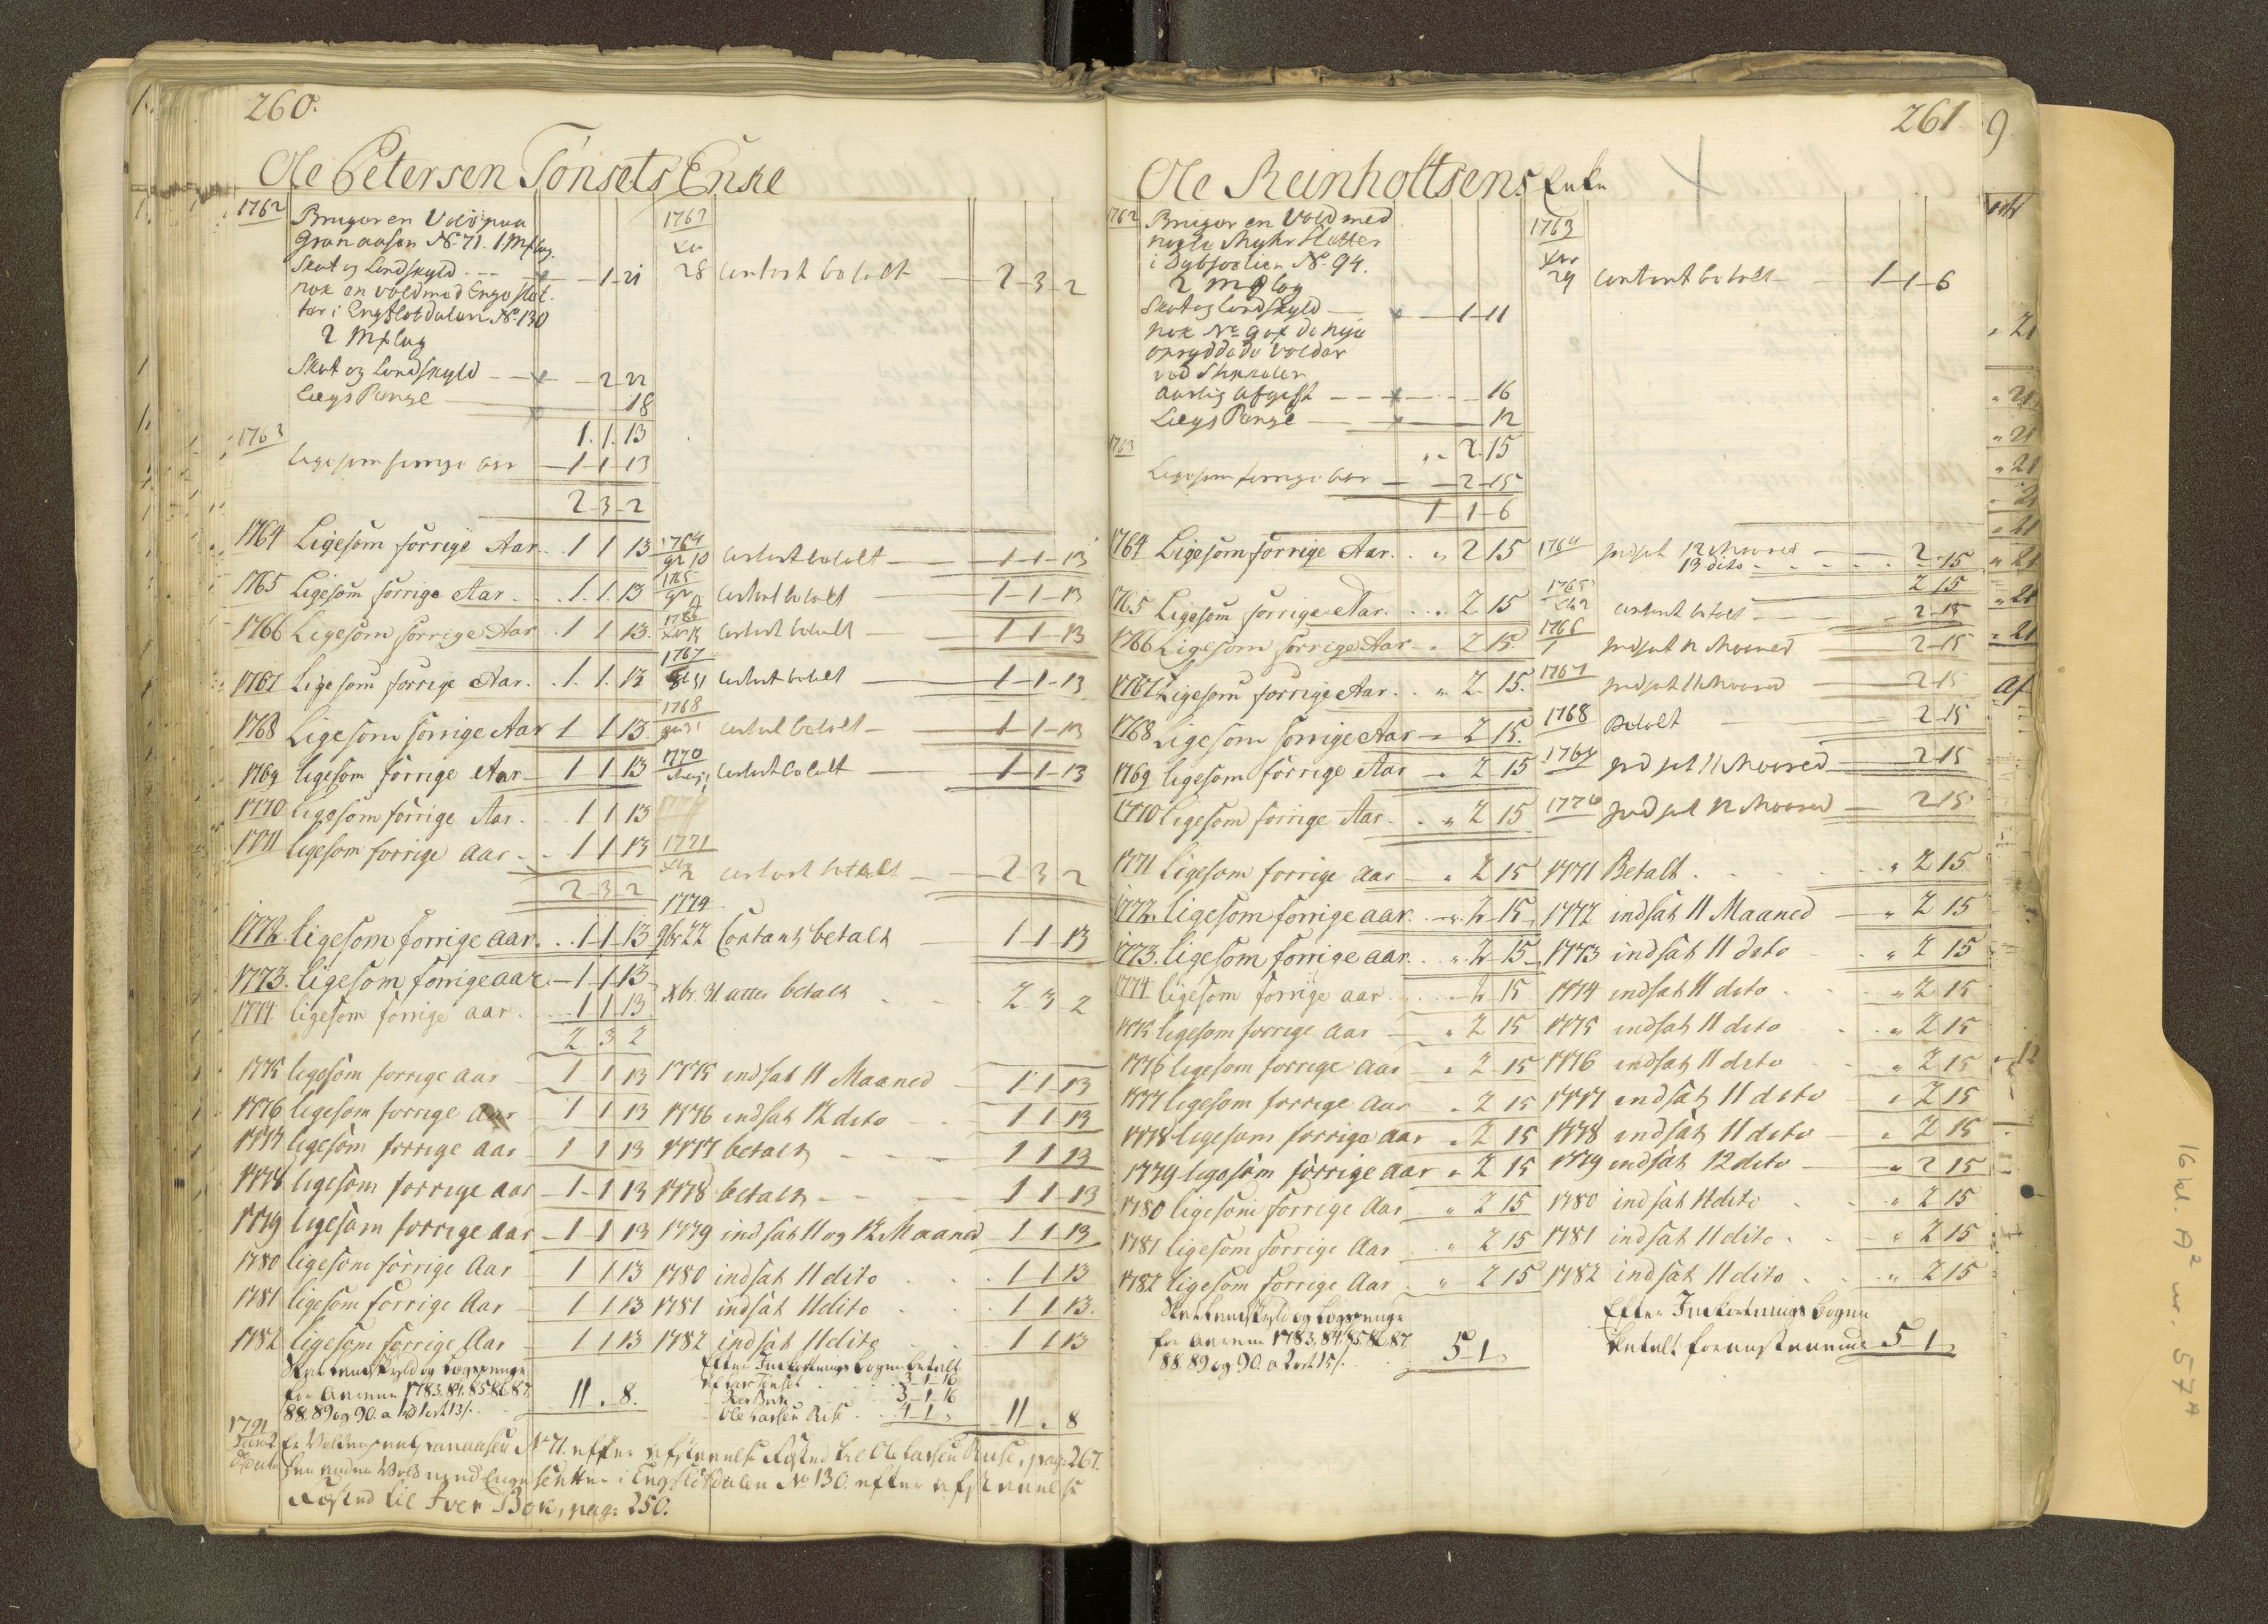 260.
Ole Petersen Tönsets Enke
1762 Bruger en Vold paa
Granaasen No. 71. 1 Mælag
Skat og Landskyld - - - 1 - 21
nok en vold med Enge slæt-
ter i Engsletdalen No. 130
2 Mælag
Skat og Landskyld - - 2 - 22
Lægs Penge - 18
1. 1. 13
1763 Ligesom forrige Aar - 1 - 1 - 13
2 - 3 - 2
1763
Xbr
28 Contant betalt - 2 - 3 - 2
1764 Ligesom forrige Aar. . 1 1 13
1765 Ligesom forrige Aar . . 1. 1. 13
1766 Ligesom forrige Aar . . 1 1 13.
1767 Ligesom forrige Aar. . 1. 1. 13
1768 Ligesom forrige Aar 1 1 13.
1769 ligesom forrige Aar - 1 1 13
1770 ligesom forrige Aar. . . 1 1 13
1771 ligesom forrige aar . . 1 1 13
2 3 2
1772. ligesom forrige aar. . . 1 - 1 - 13
1773. ligesom forrige aar - 1 - 1 - 13
1774. ligesom forrige aar . . . 1 1 13.
2 3 2
1775 ligesom forrige aar - 1 1 13
1776 ligesom forrige aar - 1 1 13
1777 ligesom forrige aar - 1 1 13
1778 ligesom forrige aar - 1 - 1 13
1779 ligesom forrige aar - 1 - 1 13
1780 ligesom forrige Aar 1 1 13
1781 ligesom forrige Aar - 1 1 13
1782 ligesom forrige Aar - 1 1 13
Skat Landskyld og Lægspenge
for Aarene 1783. 84. 85. 86. 87.
88. 89 og 90. a 1 rd 1 ort 13 s. . . 11 . 8.
1764
9br 10 Contant betalt - 1 - 1 - 13
1765
9br Contant betalt - 1 - 1 - 13
1766
Xbr Contant betalt - 1 - 1 - 13
1767
31 Contant betalt - 1 - 1 - 13
1768
Contant betalt - 1 - 1 - 13
1770
Contant betalt - 1 - 1 - 13
1771
Xbr 2 Contant betalt - 2 3 2
1774
9br 22 Contant betalt - 1 - 1 - 13
Xbr. 31 atter betalt . . . 2 3 2
1775 indsat 11 Maaned - 1 1 13
1776 indsat 12 dito - . . 1 1 13
1777 betalt - - - - 1 1 13
1778 betalt - - - - 1 1 - 13
1779 indsat 11 og 12 Maaned - 1 1 13
1780 indsat 11 dito . . . 1 1 13
1781 indsat 11 dito . . . 1 1 13.
1782 indsat 11 dito . . 1 1 13
Efter Indkortnings Bogen betalt
af Lars Tönset . . . 3 - 1 - 16
Iver Bok . . . 3 - 1 - 16
Ole Larsen Ruse . . 4 - 1 „ 11 . 8
1791
Jan. 2 Er Volden paa Granaasen No. 71. efter afstaaelse tilført til Ole Larsen Ruse, pag: 267.
Dito den anden Vold med Enge sletter i Engsletdalen No. 130. efter afstaaelse
tilført til Iver Bok, pag: 250.
261
Ole Reinholtsens Enke
1762 Bruger en Vold med
nogle Myhr Sletter
i Dybsoelien No. 94.
2 Mælag
Skat og Landskyld - 1 - 11
nok No. 9 af de nye
opryddede Volder
ved
aarlig Afgift - - - - 16
Lægs Penge - 12
„ - 2. 15
1763
Ligesom forrige Aar - - 2 - 15
1 - 1 - 6
1763
Xbr
29 Contant betalt - 1 - 1 - 6
1764 Ligesom forrige Aar. . „ 2 15
1765 Ligesom forrige Aar. . „ 2. 15
1766 Ligesom forrige Aar . „ 2 15.
1767 Ligesom forrige Aar. . „ 2. 15.
1768 Ligesom forrige Aar - „ 2 15.
1769 ligesom forrige Aar - „ 2 15
1770 ligesom forrige Aar. . „ 2 15
1771 ligesom forrige aar - „ 2 15
1772. ligesom forrige aar. - „ 2 - 15
1773. ligesom forrige aar. . „ 2 - 15
1774 ligesom forrige aar . . . „ 2 15
1775 ligesom forrige aar - „ 2 15
1776 ligesom forrige aar - „ 2 - 15
1777 ligesom forrige aar . „ 2 15
1778 ligesom forrige aar „ 2 15
1779 ligesom forrige aar „ 2 15
1780 ligesom forrige Aar „ 2 15
1781 ligesom forrige Aar . „ 2 15
1782 ligesom forrige Aar . „ 2 15
Skat Landskyld og Lægspenge
for Aarene 1783. 84. 85. 86. 87.
88. 89 og 90. a 2 ort 15 s. . . 5 - 1 „
1764 indsat 12 Maaned - 2 - 15
13 dito - - - - 2 15
1765
Contant betalt - - 2 - 15
1766 indsat 12 Maaned - 2 - 15
1767 indsat 11 Maaned - 2 - 15
1768 Betalt - 2 15
1769 indsat 11 Maaned - 2 15
1770 indsat 12 Maaned - 2 15
1771 Betalt. . . . „ 2 15
1772 indsat 11 Maaned - „ 2 15
1773 indsat 11 dito - . „ 2 15
1774 indsat 11 dito . . „ 2 15
1775 indsat 11 dito . . „ 2 15
1776 indsat 11 dito . . „ 2 15
1777 indsat 11 dito - „ 2 15
1778 indsat 11 dito - „ 2 15
1779 indsat 12 dito - „ 2 15
1780 indsat 11 dito . . „ 2 15
1781 indsat 11 dito . . „ 2 15
1782 indsat 11 dito . . „ 2 15
Efter Indkortnings Bogen
betalt foranstaaende 5 - 1 „
16 kl. A² nr. 57ᴬ